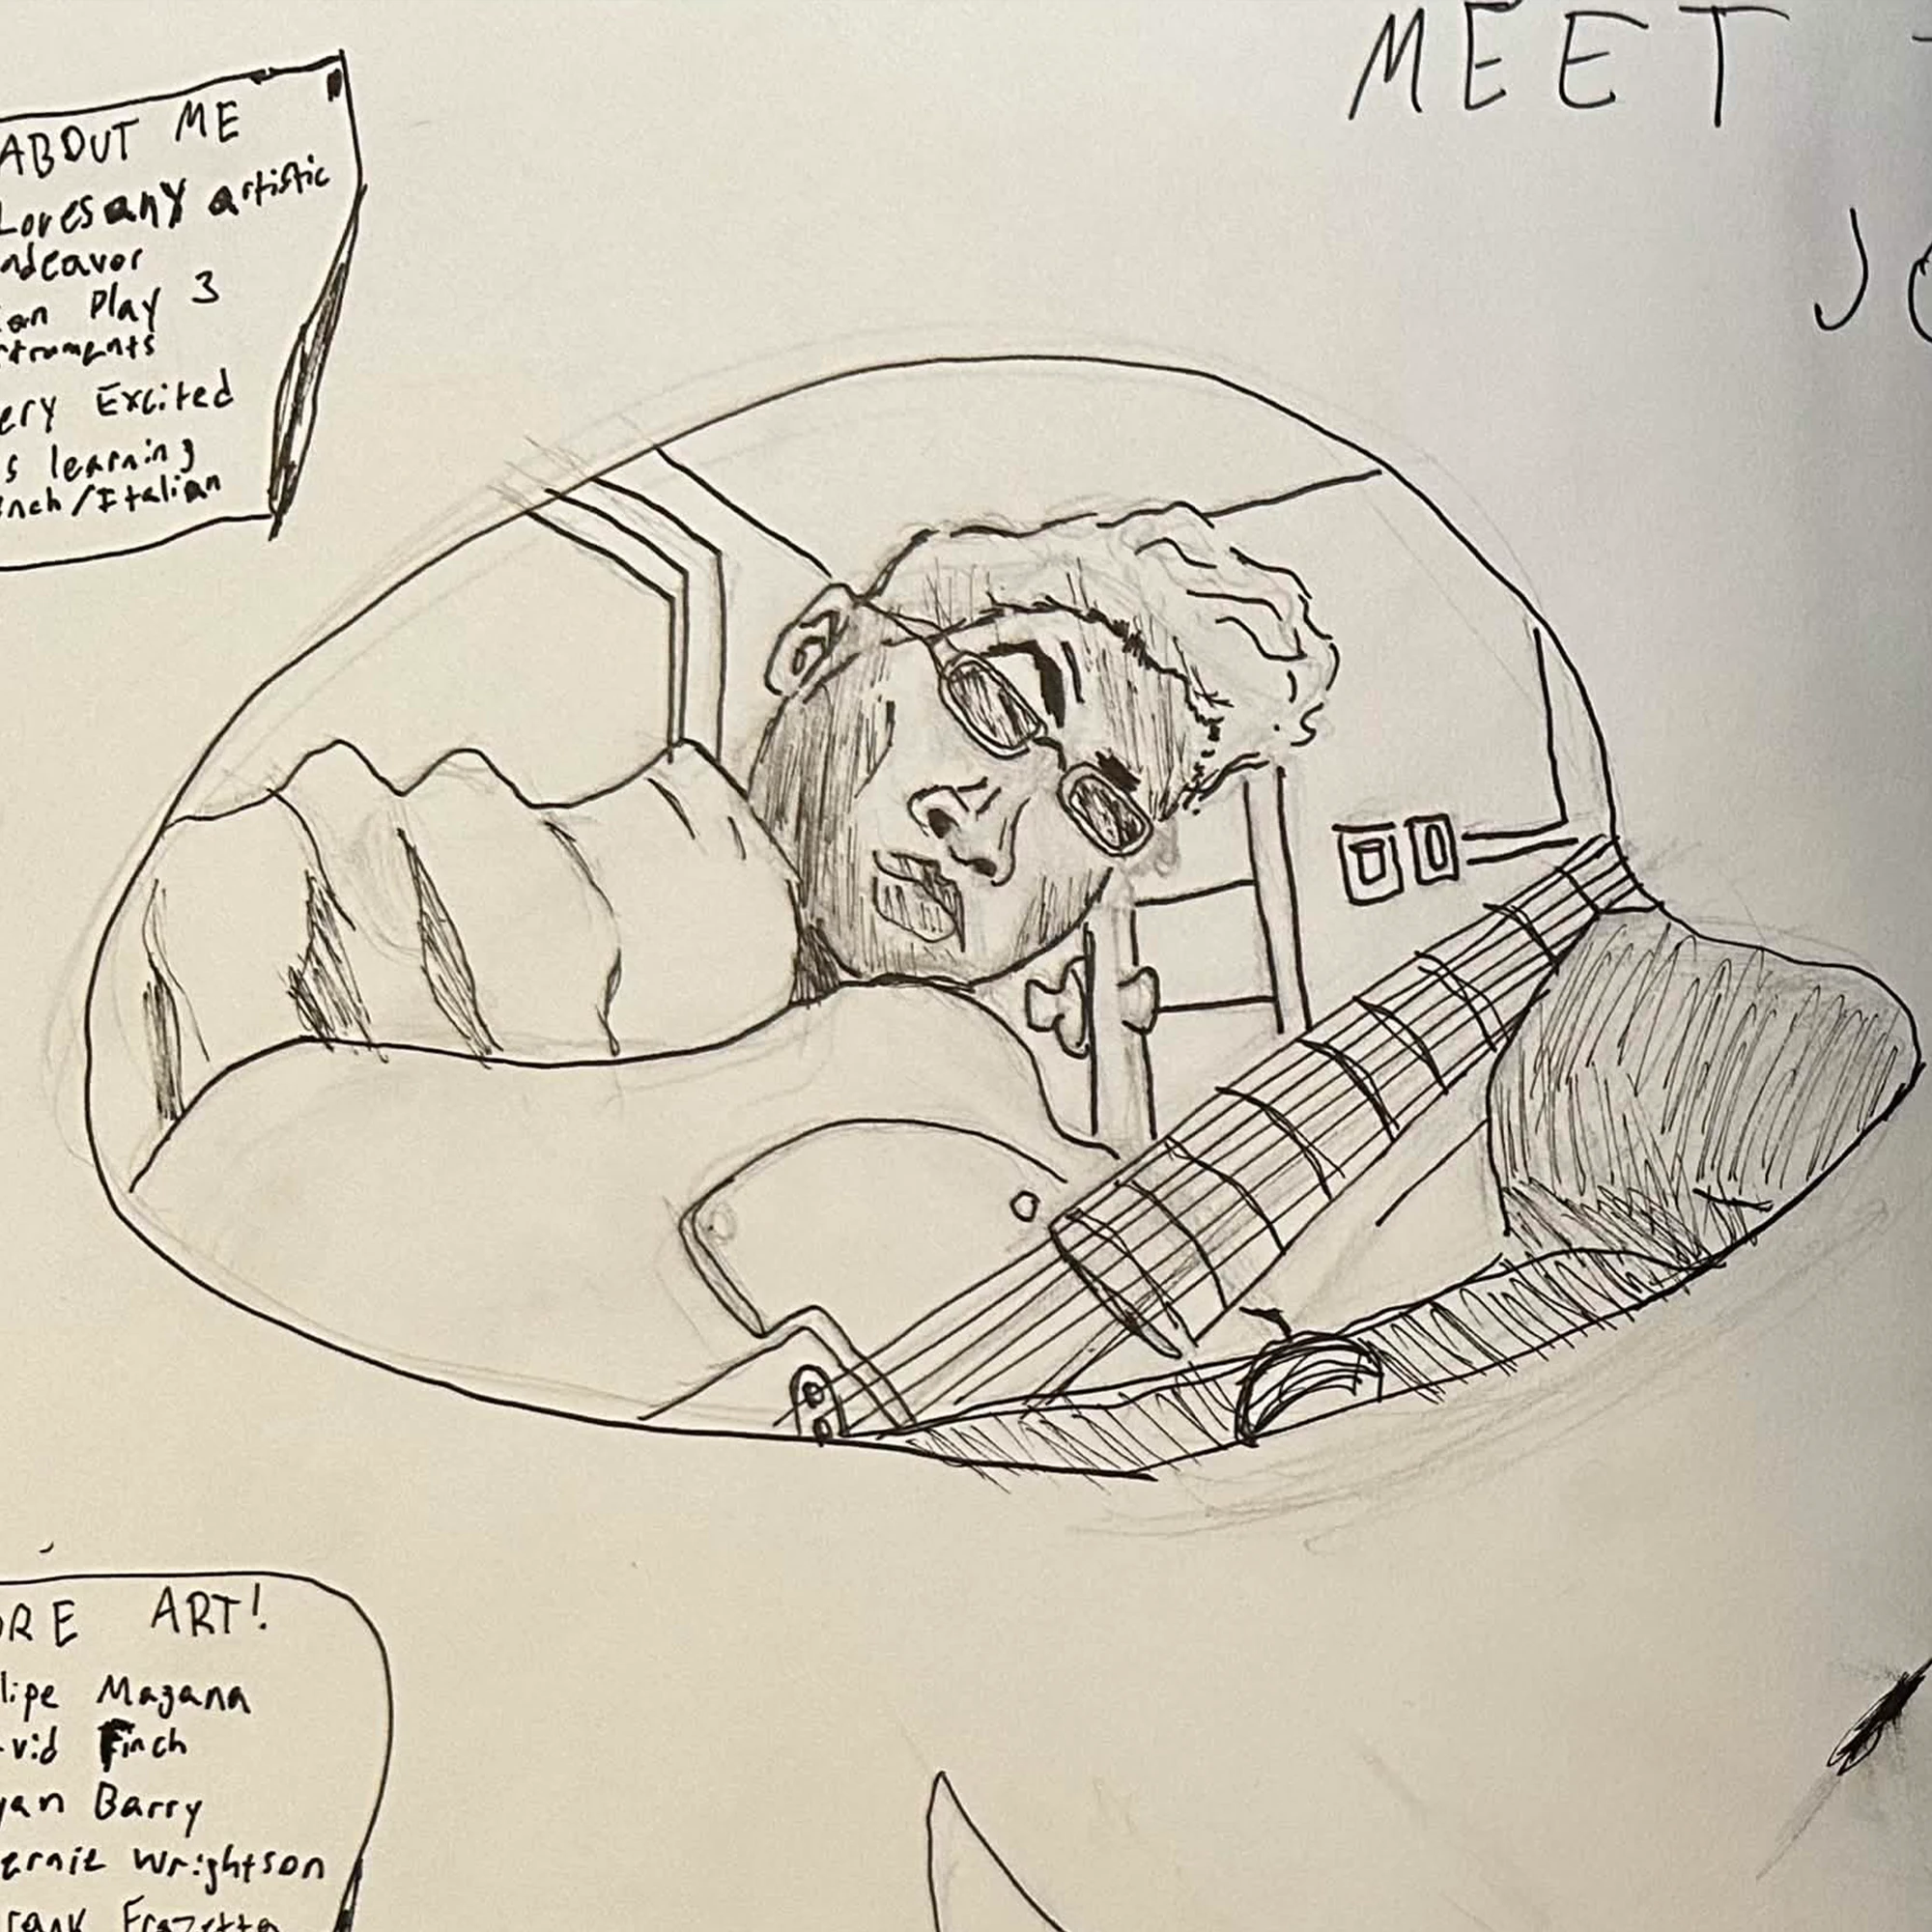 MEET
ABOUT ME
Loves any artistic
ndeavor
an Play 3
struments
ery Excited
s learning
ench/Italian
JO
ORE ART!
lipe Magana
vid Finch
yan Barry
ernie Wrightson
rank Frazetta